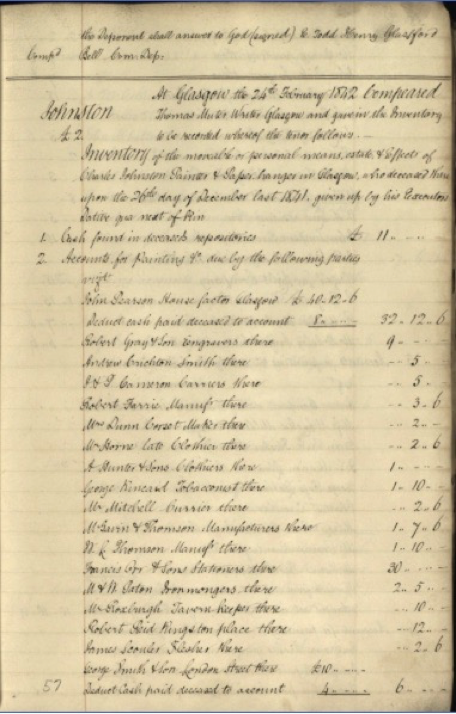 the Deponent shall answer to God (signed) C. Todd Henry Glassford
Comp'd Bell Com. Dep.
At Glasgow the 24th February 1842 Compeared
Johnston Thomas Muter Writer Glasgow and gave in the Inventory
£ 2 to be recorded whereof the tenor follows.—
Inventory of the movable or personal means, estate & effects of
Charles Johnston Painter & Paper hanger in Glasgow, who deceased there
upon the 26th day of December last 1841, given up by his Executors
Dative qua next of Kin
1. Cash found in deceased's repositories £ 11 .. - .. -
2. Accounts for Painting &c due by the following parties
vizt
John Pearson House factor Glasgow £ 40 .. 12 .. 6
Deduct cash paid deceased to account 8 .. - .. - 32 .. 12 .. 6
Robert Gray & Son Engravers there 9 .. - .. -
Andrew Crichton Smith there - .. 5 .. -
J & P. Cameron Carriers there - .. 5 .. -
Robert Farrie Manufr there - .. 3 .. 6
Mrs Dunn Corset Maker there - .. 2 .. -
Mr Horne late Clothier there - .. 2 .. 6
A Hunter & Sons Clothiers there 1 .. - .. -
George Kincaid Tobacconist there 1 .. 10 .. -
Mr Mitchell Currier there - .. 2 .. 6
& Thomson Manufacturers there 1 .. 7 .. 6
Thomson Manufr there 1 .. 10 .. -
Francis Orr & Sons Stationers there 30 .. - .. -
M & W Paton Ironmongers there 2 .. 5 .. -
Mr Roxburgh Tavern Keeper there - .. 10 .. -
Robert Reid Kingston place there - .. 12 .. -
James Scouler Flesher there - .. 2 .. 6
George Smith & Son London Street there £10 .. - .. -
57 Deduct Cash paid deceased to account 4 .. - .. - 6 .. - .. -